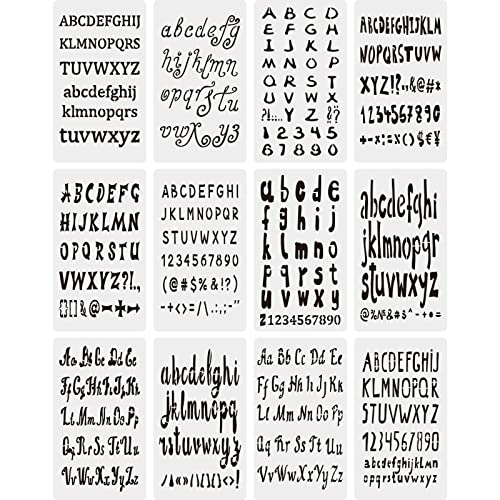 ABCDEFGHI
JKLMNOPQRS
TUVWXYZ
abcdefghij
klmnopqrs
tuvwxyz
abcdefg
hijklmn
opqrstu
vwxyz
A B C D
E F G H
I J K L
M N O P
Q R S T
U V W X
Y Z
1 2 3 4 5
6 7 8 9 0
ABCDEFGHIJKLM
NOPQRSTUVW
1234567890
+-×:=×()$€¥
ABCDEFG
HIJKLMN
OPQRSTU
VWXYZ?!.,
ABCDEFGHI
JKLMNOPQR
STUVWXYZ
1234567890
(@#$%&!?)
a b c d e
f g h i j
k l m n o
p q r s t
u v w x y
z1234567890
abcdefghi
jklmnopqr
stuvwxyz
Aa Bb Cc Dd Ee
Ff Gg Hh Ii Jj
Kk Ll Mm Nn
Oo Pp
Qq Rr Ss Tt Uu
Vv Ww Xx Yy Zz
abcdefghi
jklmnopqr
stuvwxyz
Aa Bb Cc Dd Ee
Ff Gg Hh Ii Jj
Kk Ll Mm Nn
Oo Pp
Qq Rr Ss Tt Uu
Vv Ww Xx Yy Zz
ABCDEFGHIJ
KLMNOPQR
STUVWXYZ
1234567890
abcdefghijklmn
opqrstuvwxyz